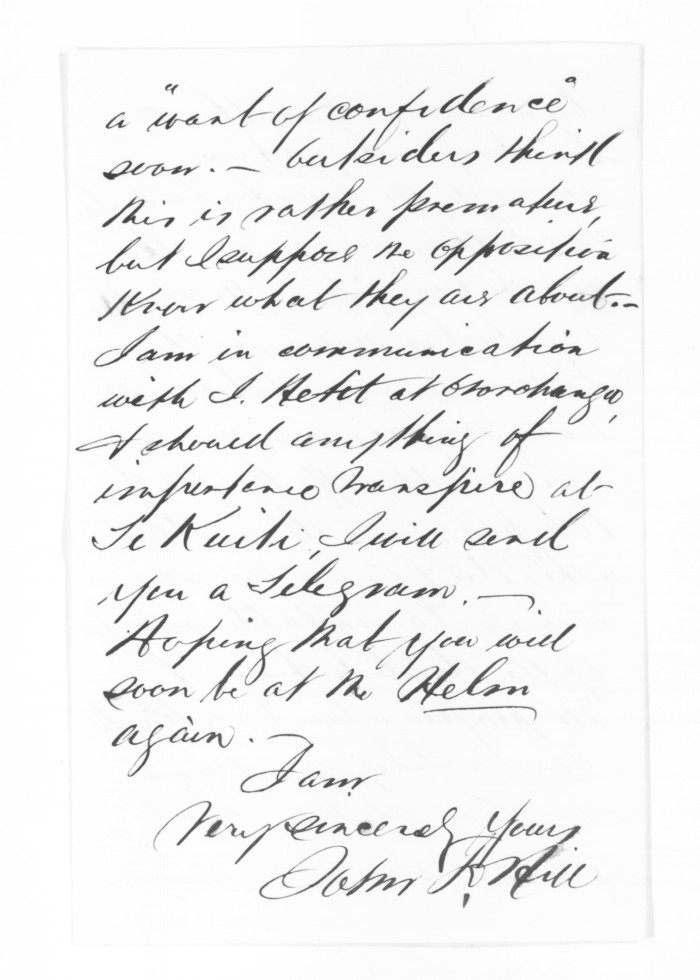 a "want of confidence"
soon. — Outsiders think
this is rather premature,
but I suppose the opposition
know what they are about. —
I am in communication
with J. Hetit at Otorohanga,
& should anything of
importance transpire at
Te Kuiti, I will send
you a Telegram. —
Hoping that you will
soon be at the Helm
again. —
I am
Very sincerely yours
John Hill